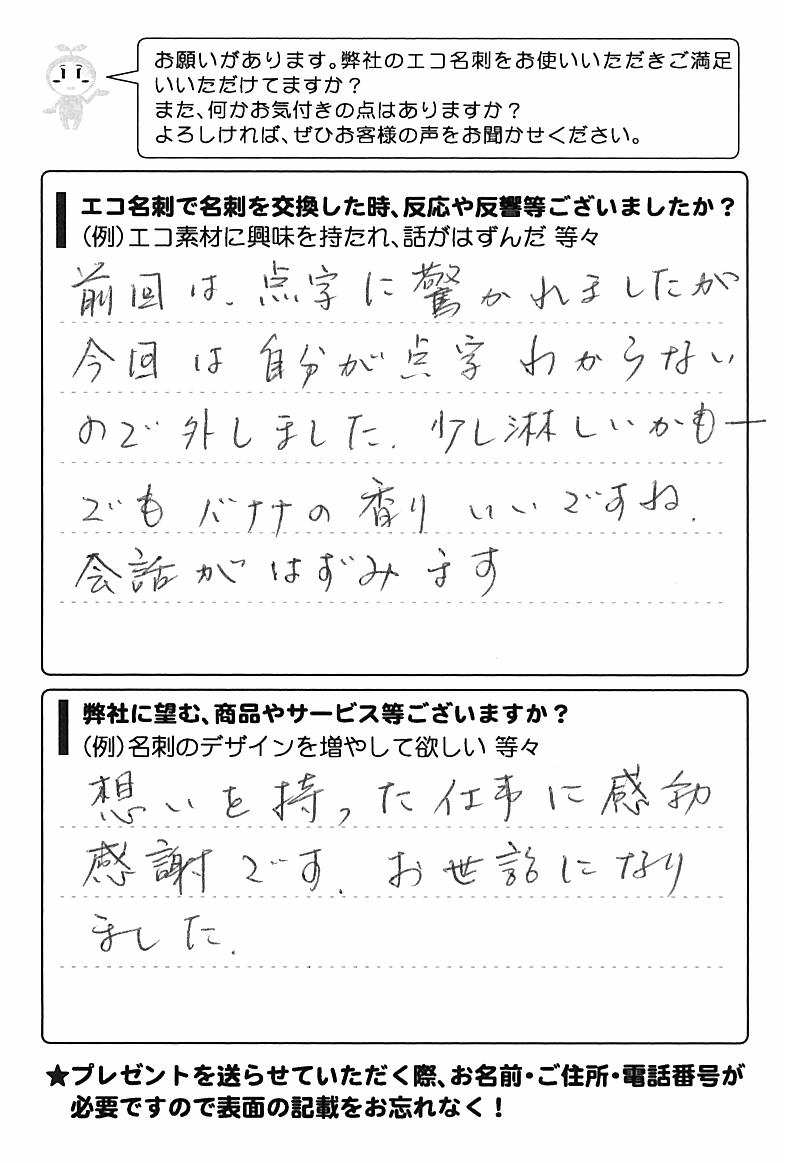 お願いがあります。弊社のエコ名刺をお使いいただきご満足
いいただけてますか？
また、何かお気付きの点はありますか？
よろしければ、ぜひお客様の声をお聞かせください。
エコ名刺で名刺を交換した時、反応や反響等ございましたか？
（例）エコ素材に興味を持たれ、話がはずんだ 等々
前回は、点字に驚かれましたが
今回は自分が点字わからない
ので外しました. 少し淋しいかもー
でもバナナの香りいいですね.
会話がはずみます
弊社に望む、商品やサービス等ございますか？
（例）名刺のデザインを増やして欲しい 等々
想いを持った仕事に感動
感謝です. お世話になり
ました.
★プレゼントを送らせていただく際、お名前・ご住所・電話番号が
必要ですので表面の記載をお忘れなく！